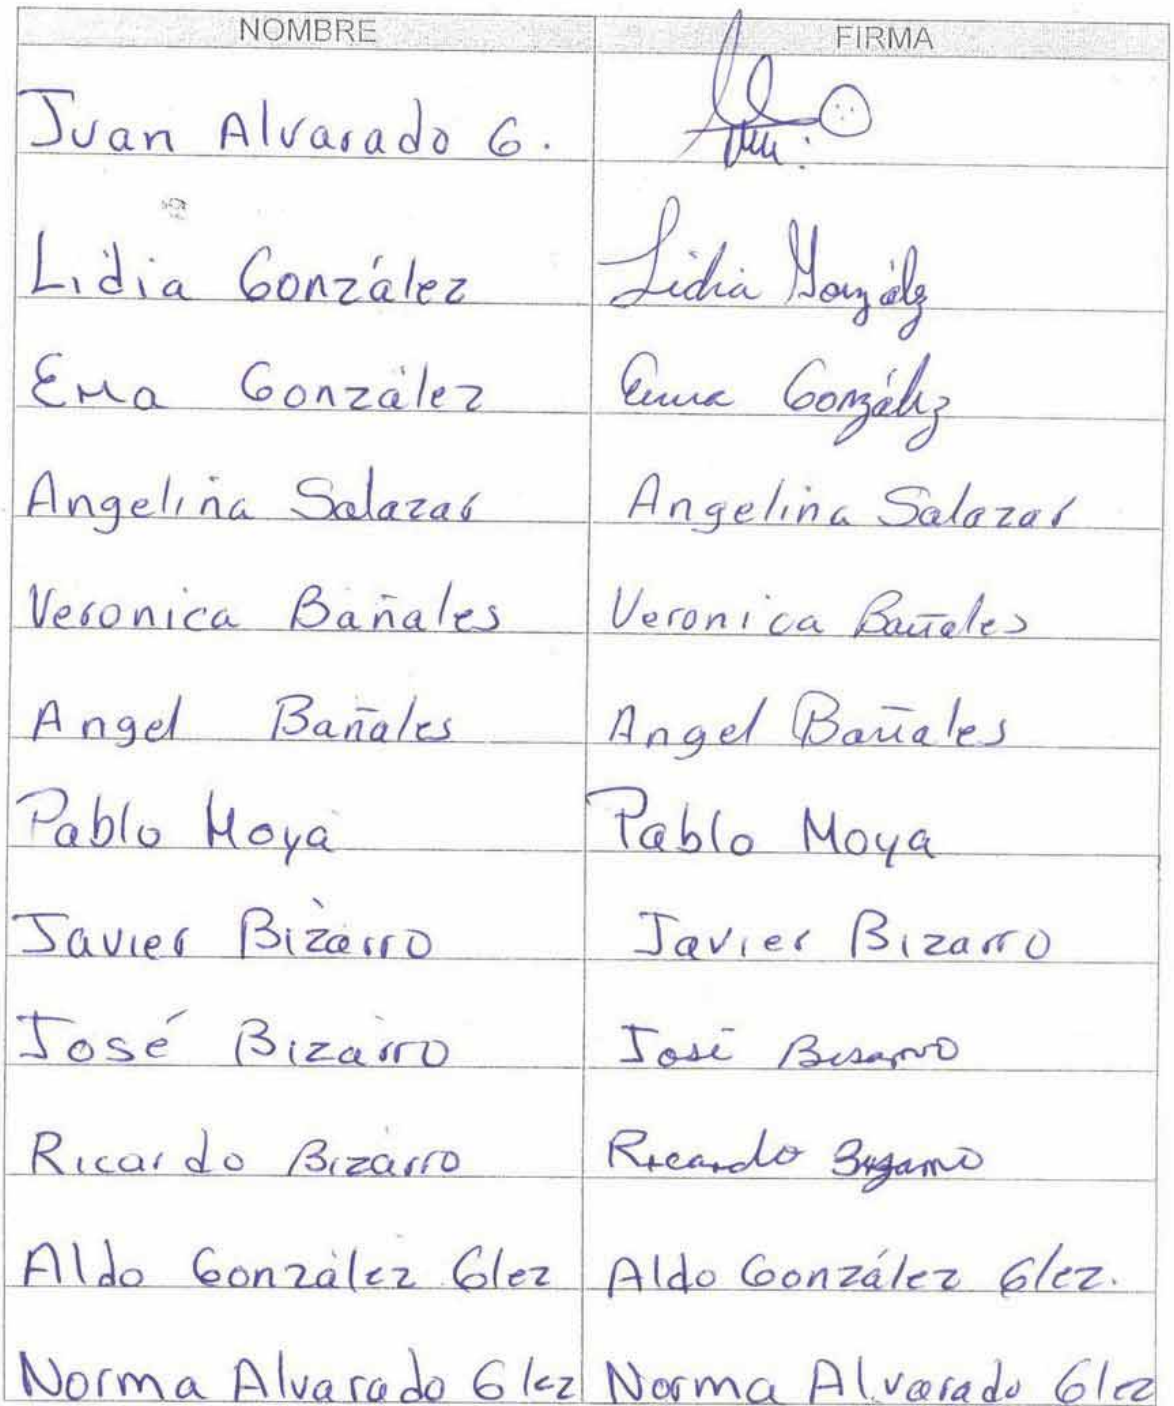 NOMBRE FIRMA
Juan Alvarado G.
Lidia González Lidia González
Ema González Emma González
Angelina Salazar Angelina Salazar
Veronica Bañales Veronica Bañales
Angel Bañales Angel Bañales
Pablo Moya Pablo Moya
Javier Bizarro Javier Bizarro
José Bizarro José Bisarro
Ricardo Bizarro Ricardo Bizarro
Aldo González Glez Aldo González Glez.
Norma Alvarado Glez Norma Alvarado Glez